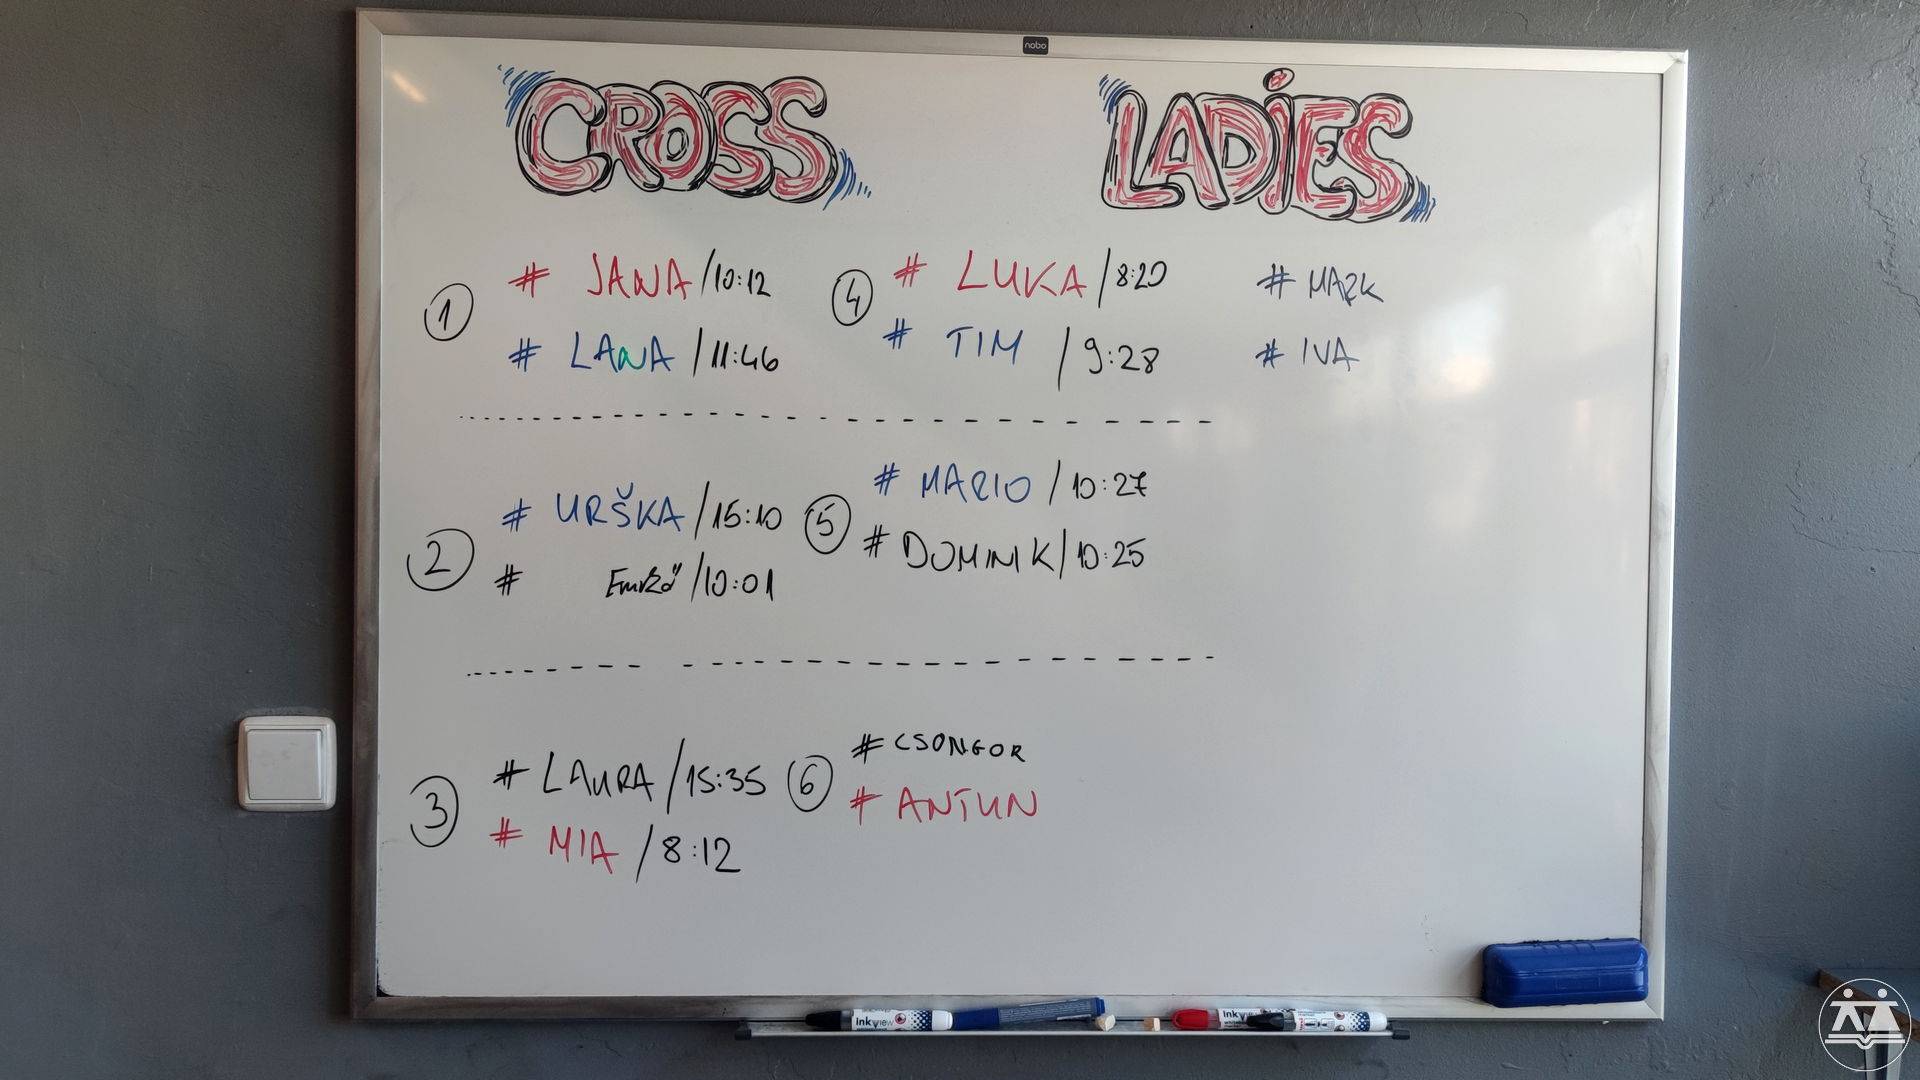 nobo
CROSS LADiES
1
# JANA / 10:12
# LANA / 11:46
4
# LUKA / 8:20
# TIM / 9:28
# MARK
# IVA
2
# URŠKA / 15:10
# / 10:01
5
# MARIO / 10:27
# DOMINIK / 10:25
3
# LAURA / 15:35
# MIA / 8:12
6
# CSONGOR
# ANTUN
inkview
ink